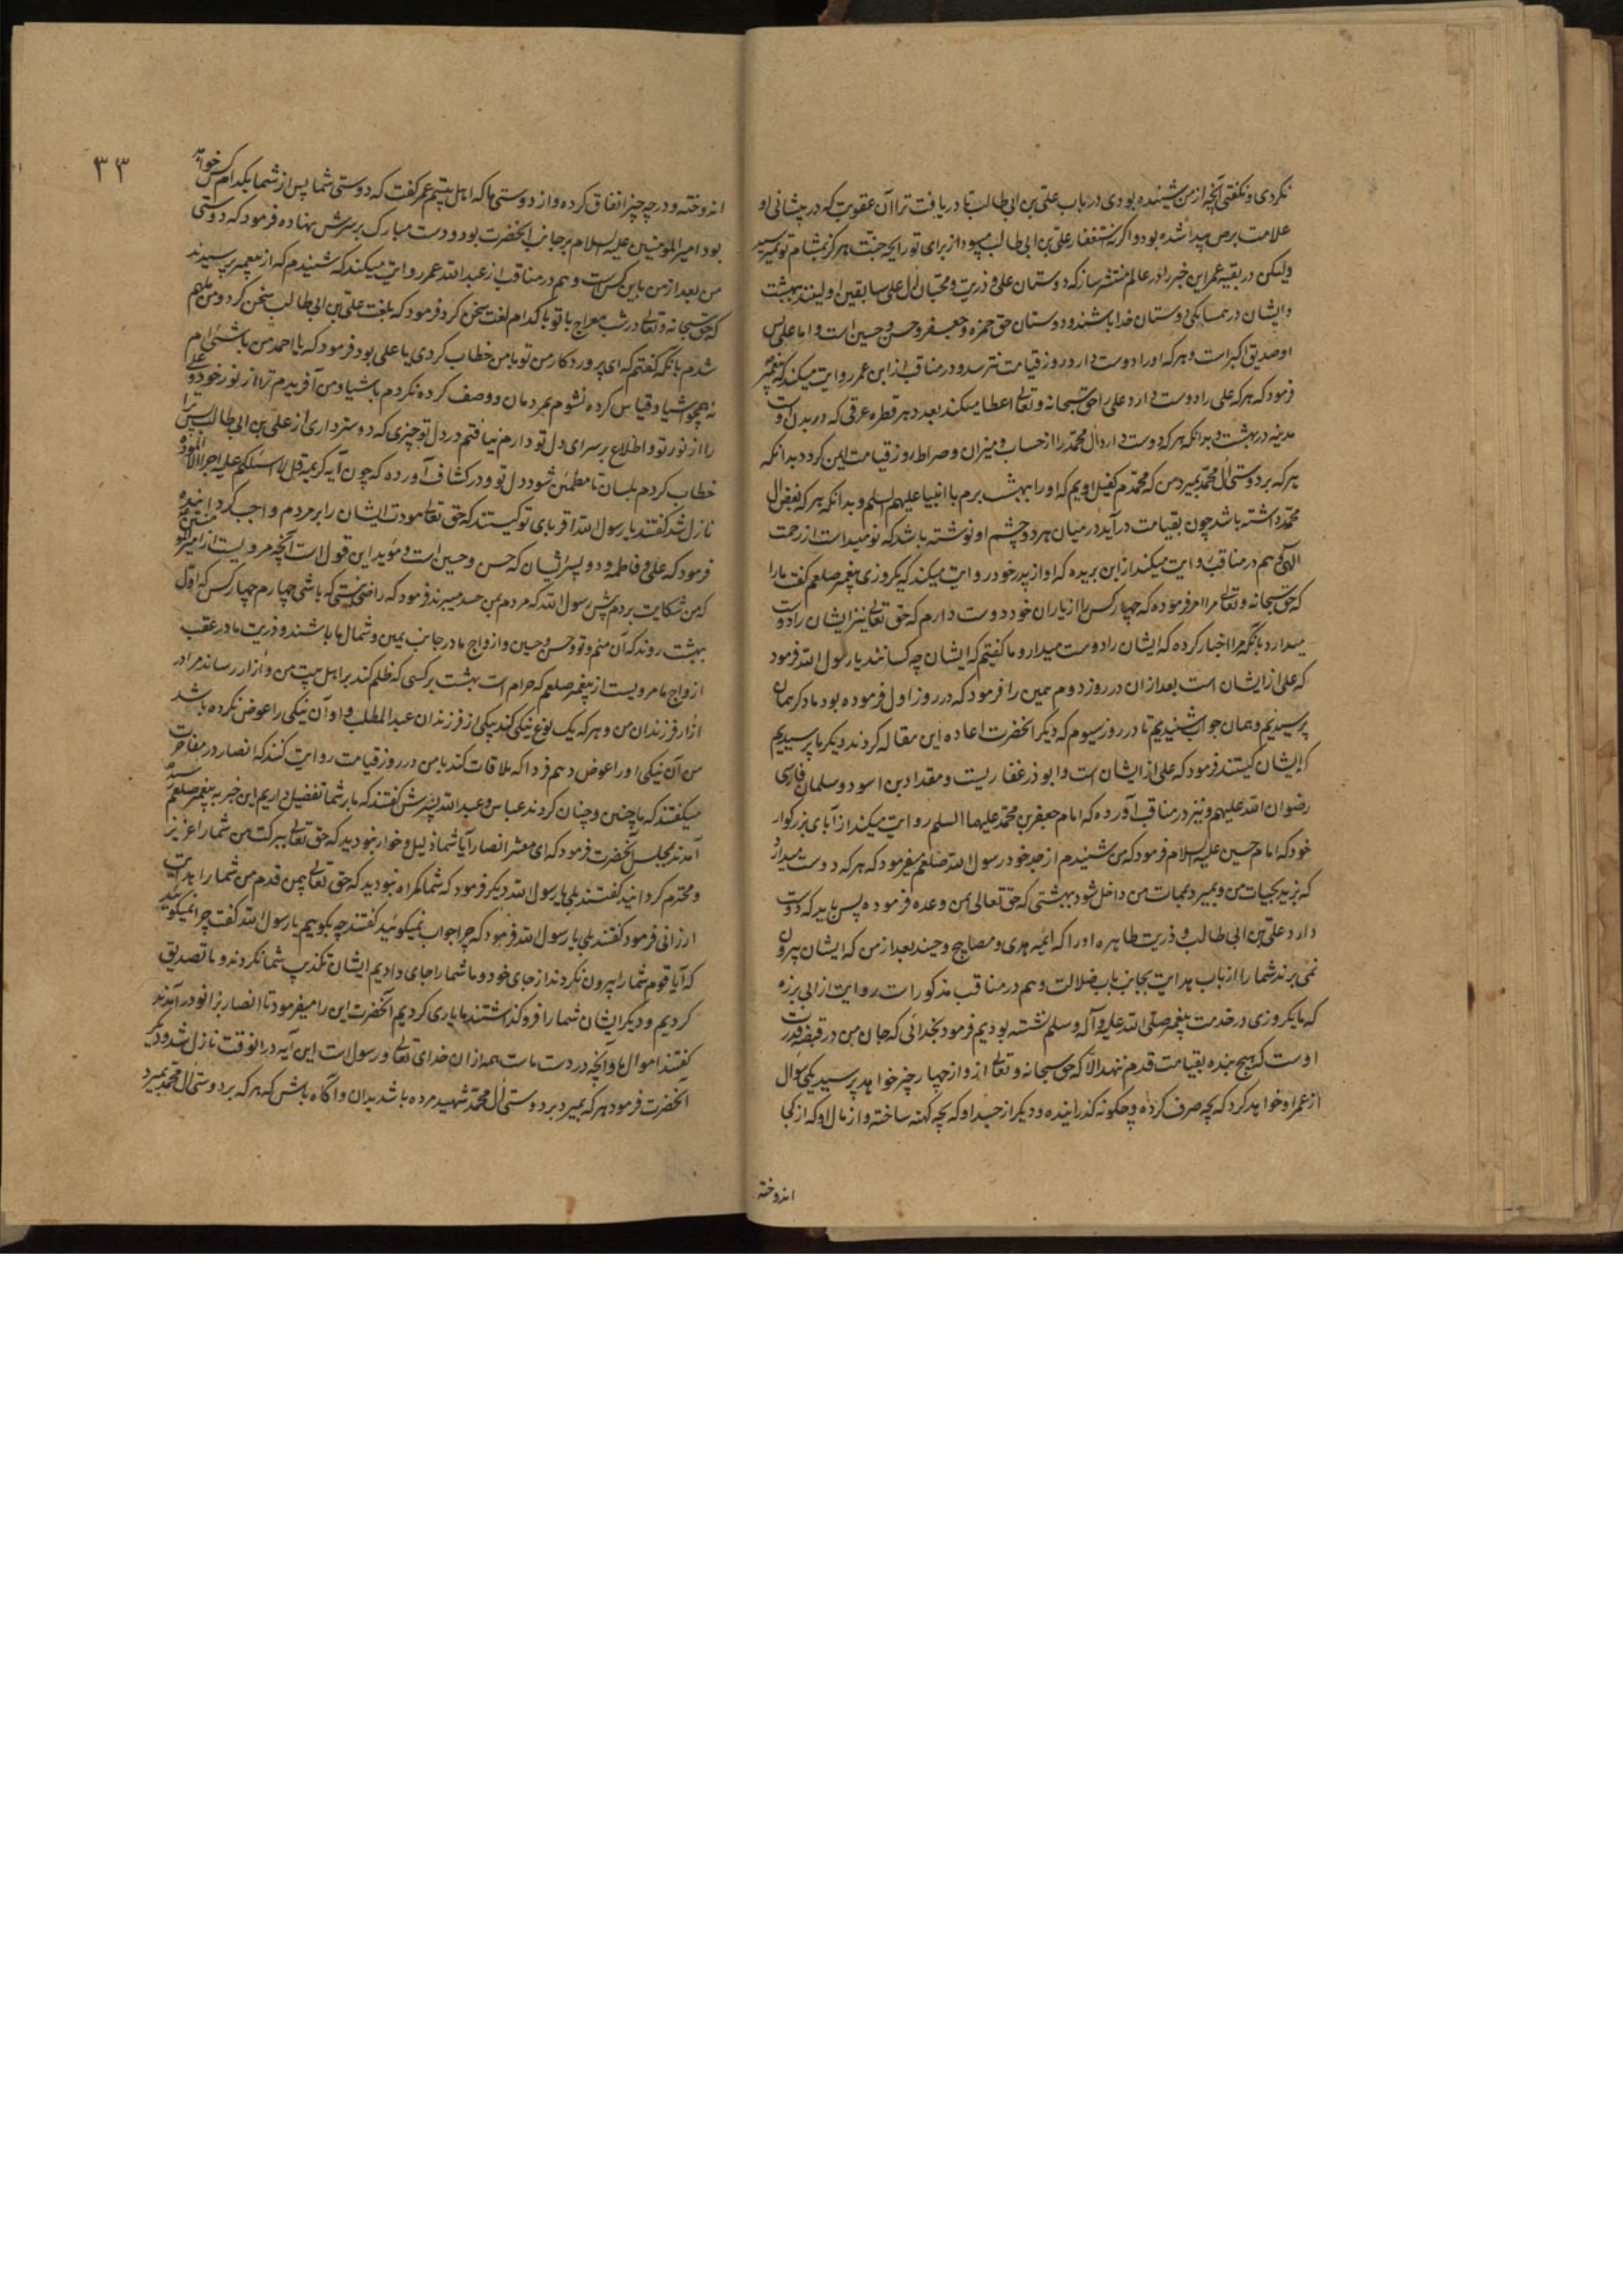 نکردی و نکفتی آنچه از من شنیده بودی در باب علی بن ابی طالب تا دریافت ترا آن عقوبت که در پیشانی او
علامت برص پیدا شده بود و اکر استغفار علی بن ابی طالب نمیبود از برای تو رایحه جنت هرکز بمشام تو نمیرسید
ولیکن در بقیه عمر این خبر را در عالم منتشر ساز که دوستان علی و ذریت و محبان آل علی سابقین اولیند ببهشت
و ایشان در همسایکی دوستان خدا باشند و دوستان حق حمزه و جعفر و حسن و حسین است و اما علی پس
او صدیق اکبر است و هر که او را دوست دارد در روز قیامت نترسد و در مناقب از ابن عمر روایت میکند که پیغمبر
فرمود که هر که علی را دوست دارد علی را حق سبحانه و تعالی اعطا میکند بعدد هر قطره عرقی که در بدن اوست
مدینه در بهشت و بدانکه هر که دوست دارد آل محمد را از حساب و میزان و صراط روز قیامت ایمن کردد بدانکه
هر که بر دوستی آل محمد بمیرد من که محمدم کفیل اویم که او را ببهشت برم با انبیا علیهم السلم و بدانکه هر که بغض آل
محمد داشته باشد چون بقیامت درآید در میان هر دو چشم او نوشته باشد که نومید است از رحمت
الهی و هم در مناقب روایت میکند از ابن بریده که او از پدر خود روایت میکند که یکروزی پیغمبر صلعم کفت ما را
که حق سبحانه و تعالی مرا امر فرموده که چهار کس را از یاران خود دوست دارم که حق تعالی نیز ایشان را دوست
میدارد بانکه مرا اخبار کرده که ایشان را دوست میدارد ما کفتیم که ایشان چه کسانند یا رسول الله فرمود
که علی از ایشان است بعد از ان در روز دوم همین را فرمود که در روز اول فرموده بود ما دکر همان
پرسیدیم و همان جواب شنیدیم تا در روز سیوم که دیکر آنحضرت اعاده این مقاله کردند دیکر ما پرسیدیم
که ایشان کیستند فرمود که علی از ایشان است و ابوذر غفاریست و مقداد بن اسود و سلمان فارسی
رضوان الله علیهم و نیز در مناقب آورده که امام جعفر بن محمد علیهما السلم روایت میکند از آبای بزرکوار
خود که امام حسین علیه السلام فرمود که من شنیدم از جد خود رسول الله صلعم میفرمود که هر که دوست میدارد
که بزید بحیات من و بمیرد بممات من داخل شود ببهشتی که حق تعالی بمن وعده فرموده پس باید که دوست
دارد علی بن ابی طالب و ذریت طاهره او را که ائمه هدی و مصابیح دجیند بعد از من که ایشان بیرون
نمی برند شما را از باب هدایت بجانب باب ضلالت و هم در مناقب مذکور است روایت از ابی برزه
که ما یکروزی در خدمت پیغمبر صلی الله علیه و آله و سلم نشسته بودیم فرمود بخدائی که جان من در قبضه قدرت
اوست که هیچ بنده بقیامت قدم ننهد الا که حق سبحانه و تعالی از و از چهار چیز خواهد پرسید یکی سؤال
از عمر او خواهد کرد که بچه صرف کرده و چکونه کذرانیده و دیکر از جسد او که بچه کهنه ساخته و از مال او که از کجا
اندوخته
٣٣
اندوخته و در چه چیز انفاق کرده و از دوستی ما که اهل بیتیم عمر کفت که دوستی شما پس از شما بکدام کس خواهد
بود امیر المومنین علیه السلام بر جانب آنحضرت بود و دست مبارک بر سرش نهاده فرمود که دوستی
من بعد از من باین کس است و هم در مناقب از عبد الله عمر روایت میکند که شنیدم که از پیغمبر پرسیدند
که حق سبحانه و تعالی در شب معراج با تو با کدام لغت سخن کرد فرمود که بلغت علی بن ابی طالب سخن کرد و من ملهم
شدم بانکه کفتم که ای پروردکار من تو با من خطاب کردی یا علی بود فرمود که یا احمد من باشیا م
نه همچو اشیا و قیاس کرده نشوم بمردمان و وصف کرده نکردم باشیا و من آفریدم ترا از نور خود و علی
را از نور تو و اطلاع بر سرای دل تو دارم نیافتم در دل تو چیزی که دوستر داری از علی بن ابی طالب پس ترا
خطاب کردم بلسان تا مطمئن شود دل تو و در کشاف آورده که چون آیه کریمه قل لا اسئلکم علیه اجرا الا المودة
نازل شد کفتند یا رسول الله اقربای تو کیستند که حق تعالی مودت ایشان را بر مردم واجب کردانیده
فرمود که علی و فاطمه و دو پسر ایشان که حسن و حسین است و مؤید این قول است آنچه مرویست از امیر المومنین
که من شکایت بردم پیش رسول الله که مردم بمن حسد میبرند فرمود که راضی نیستی که باشی چهارم چهار کس که اول
ببهشت روند که آن منم و تو و حسن و حسین و ازواج ما در جانب یمین و شمال ما باشند و ذریت ما در عقب
ازواج ما مرویست از پیغمبر صلعم که حرام است بهشت بر کسی که ظلم کند بر اهل بیت من و آزار رساند مرا در
آزار فرزندان من و هر که یک نوع نیکی کند بیکی از فرزندان عبد المطلب و او آن نیکی را عوض نکرده باشد
من آن نیکی او را عوض دهم فردا که ملاقات کند با من در روز قیامت روایت کنند که انصار در مفاخرت
میکفتند که ما چنین و چنان کردند عباس و عبد الله پسرش کفتند که ما بر شما تفضیل داریم این خبر به پیغمبر صلعم رسیده
آمدند بمجلس آنحضرت فرمود که ای معشر انصار آیا شما ذلیل و خوار نبودید که حق تعالی ببرکت من شما را عزیز
و محترم کردانید کفتند بلی یا رسول الله دیکر فرمود که شما کمراه نبودید که حق تعالی بیمن قدم من شما را هدایت
ارزانی فرمود کفتند بلی یا رسول الله فرمود که چرا جواب نمیکوئید کفتند چه بکوییم یا رسول الله کفت چرا نمیکوئید
که آیا قوم شما را بیرون نکردند از جای خود و ما شما را جای دادیم ایشان تکذیب شما نکردند و ما تصدیق
کردیم و دیکر ایشان شما را فرو کذاشتند ما یاری کردیم آنحضرت این را میفرمود تا انصار بزانو درآمدند
کفتند اموال ما و آنچه در دست ماست همه از ان خدای تعالی و رسول است این آیه در انوقت نازل شد و دیکر
آنحضرت فرمود هر که بمیرد بر دوستی آل محمد شهید مرده باشد بدان و آکاه باش که هر که بر دوستی آل محمد بمیرد